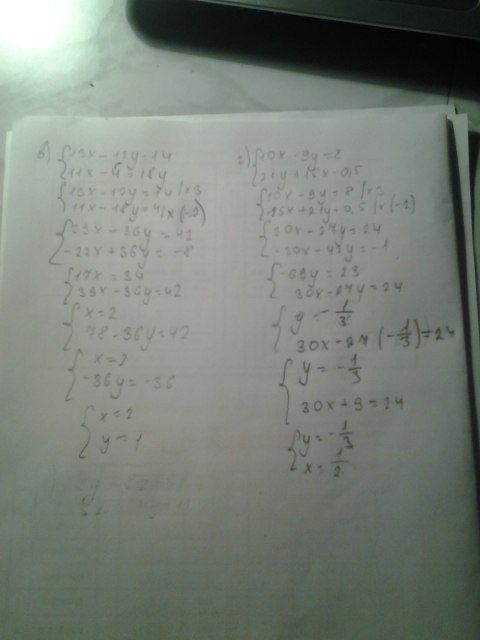 в) 13x - 12y = 14
11x - 4 = 18y
13x - 12y = 14 | x3
11x - 18y = 4 | x(-2)
39x - 36y = 42
-22x + 36y = -8
17x = 34
39x - 36y = 42
x = 2
78 - 36y = 42
x = 2
-36y = -36
x = 2
y = 1
г) 10x - 9y = 8
21y + 15x = 0,5
10x - 9y = 8 | x3
15x + 21y = 0,5 | x(-2)
30x - 27y = 24
-30x - 42y = -1
-69y = 23
30x - 27y = 24
y = -1/3
30x - 27(-1/3) = 24
y = -1/3
30x + 9 = 24
y = -1/3
x = 1/2